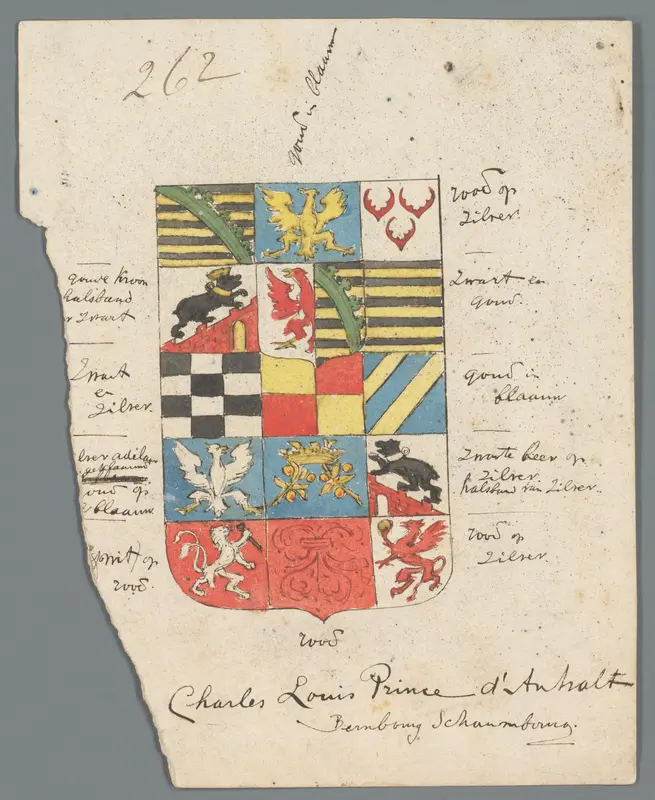 262
goud in blaauw
rood op
zilver.
goude kroon
halsband
zwart
Zwart en
goud.
Zwart
en
zilver.
goud in
blaauw
goud op
blaauw
Zwarte beer op
zilver
halsband van zilver.
(wit) op
rood.
rood op
zilver.
rood
Charles Louis Prince d'Anhalt
Bernbourg Schaumbourg.